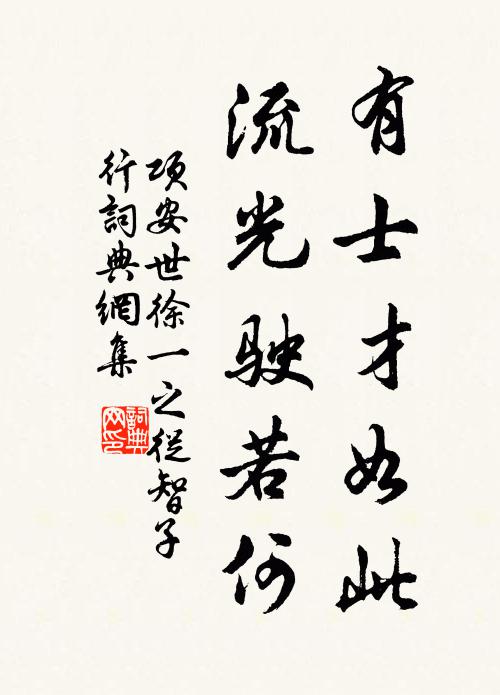 有士才如此
流光駛若何
項安世徐一之從智子
行詞典網集
詞典
网印